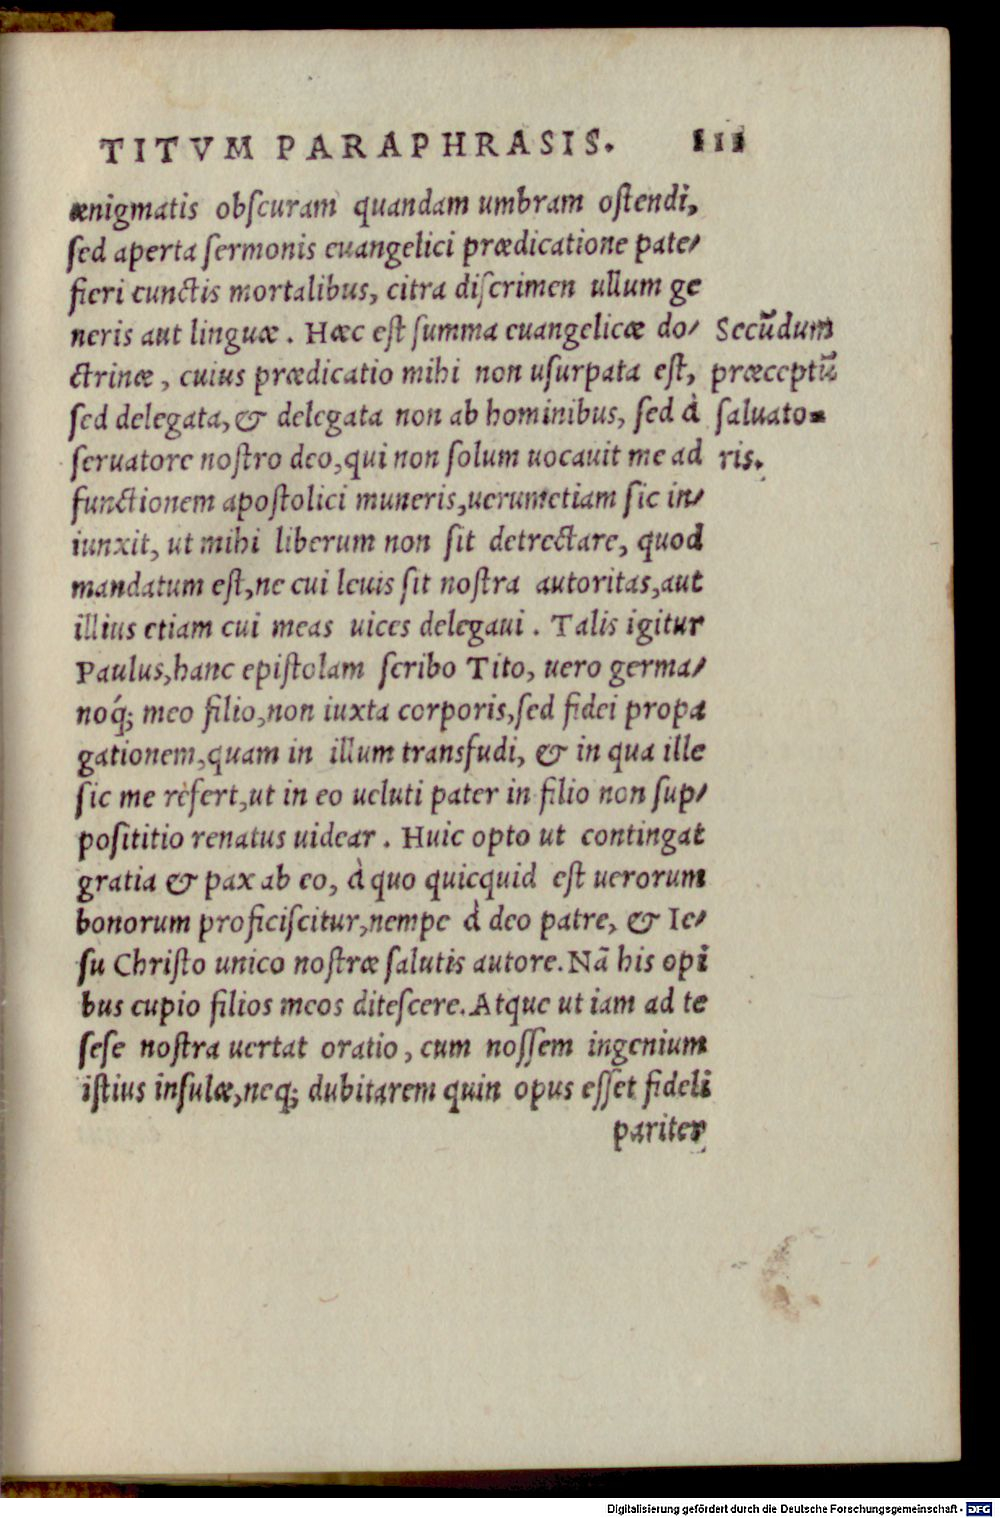 TITVM PARAPHRASIS. III
ænigmatis obſcuram quandam umbram oſtendi,
ſed aperta ſermonis euangelici prædicatione pate/
fieri cunctis mortalibus, citra diſcrimen ullum ge
neris aut linguæ. Hæc eſt ſumma euangelicæ do/
ctrinæ, cuius prædicatio mihi non uſurpata eſt,
ſed delegata, & delegata non ab hominibus, ſed à
ſeruatore noſtro deo, qui non ſolum uocauit me ad
functionem apoſtolici muneris, uerumetiam ſic in/
iunxit, ut mihi liberum non ſit detrectare, quod
mandatum eſt, ne cui leuis ſit noſtra autoritas, aut
illius etiam cui meas uices delegaui. Talis igitur
Paulus, hanc epiſtolam ſcribo Tito, uero germa/
noq́; meo filio, non iuxta corporis, ſed fidei propa
gationem, quam in illum transfudi, & in qua ille
ſic me rèfert, ut in eo ueluti pater in filio non ſup/
poſititio renatus uidear. Huic opto ut contingat
gratia & pax ab eo, à quo quicquid eſt uerorum
bonorum proficiſcitur, nempe à deo patre, & Ie/
ſu Chriſto unico noſtræ ſalutis autore. Nã his opi
bus cupio filios meos diteſcere. Atque ut iam ad te
ſeſe noſtra uertat oratio, cum noſſem ingenium
iſtius inſulæ, neq; dubitarem quin opus eſſet fideli
pariter
Secũdum
præceptũ
ſaluato=
ris.
Digitalisierung gefördert durch die Deutsche Forschungsgemeinschaft - DFG